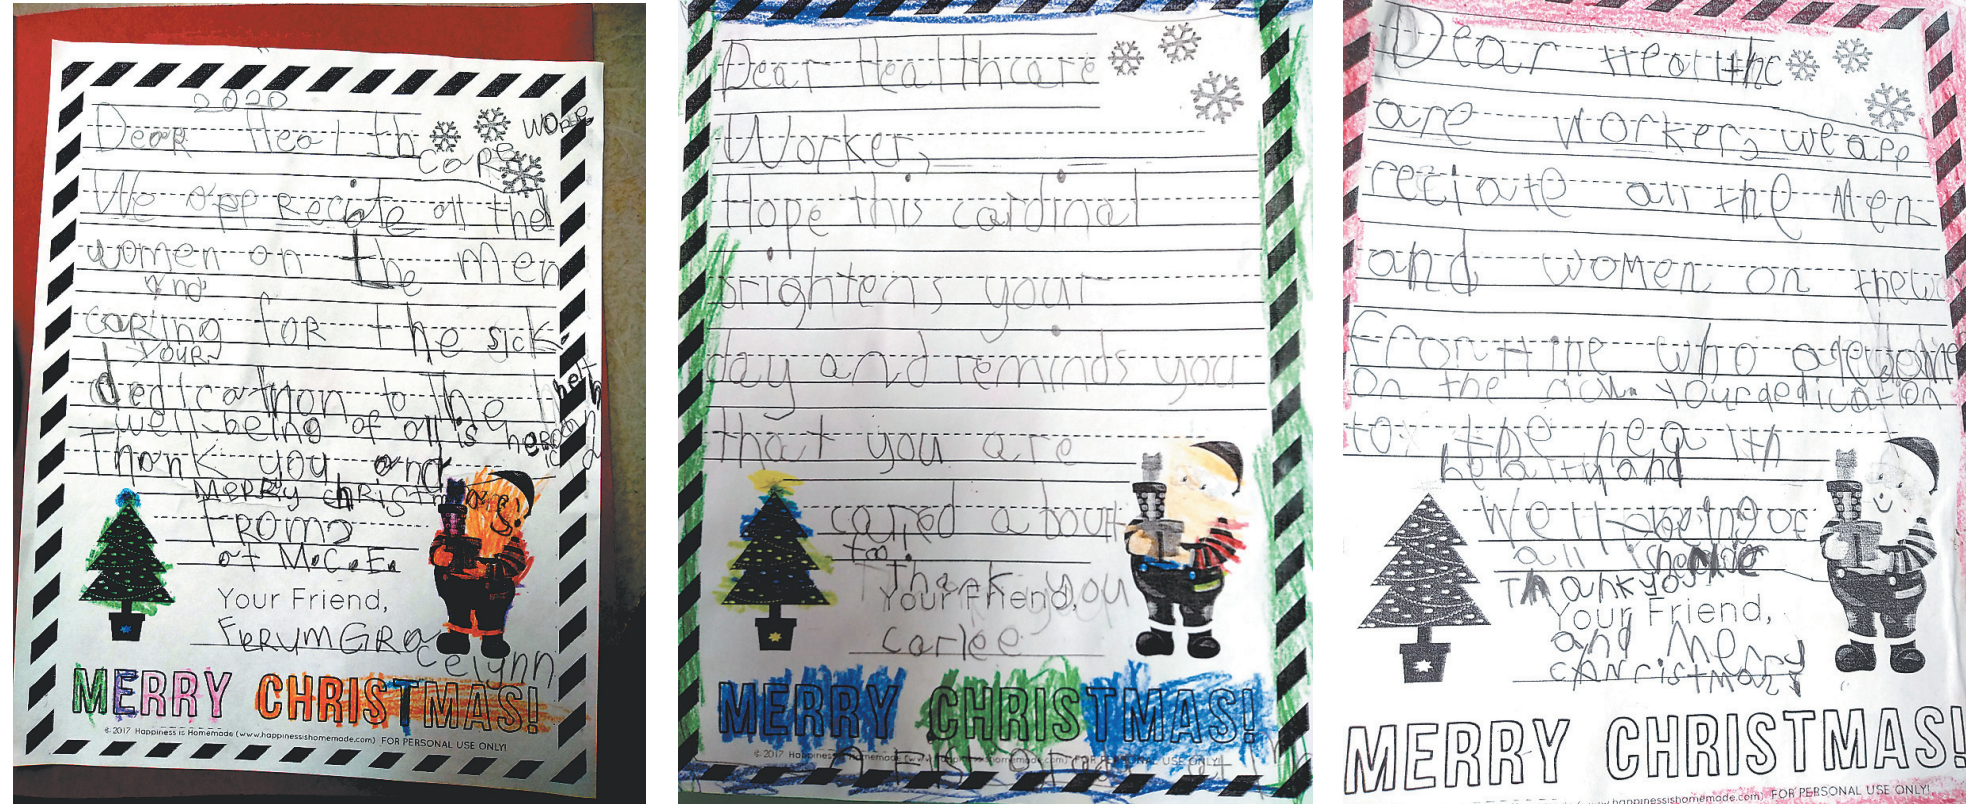 2020
Dear Health
Care
work
We appreciate all the
women on the men
and
caring for the sick
your
dedication to the
well-being of all is
Thank you and
Merry Christmas
From
at M.C.E.
Your Friend,
Gracelynn
MERRY CHRISTMAS!
© 2017 Happiness is Homemade (www.happinessishomemade.com) FOR PERSONAL USE ONLY!
Dear Healthcare
Worker,
Hope this cardinal
brightens your
day and reminds you
that you are
cared about
too.
Thank you
Your Friend,
Carlee
MERRY CHRISTMAS!
© 2017 Happiness is Homemade (www.happinessishomemade.com) FOR PERSONAL USE ONLY!
Dear Healthc
are workers, we app
reciate all the men
and women on the
who
on the sick. Your dedication
to the health
and
Well-being of
all
Thank you
Your Friend,
and Merry
Christmas
MERRY CHRISTMAS!
www.happinessishomemade.com) FOR PERSONAL USE ONLY!